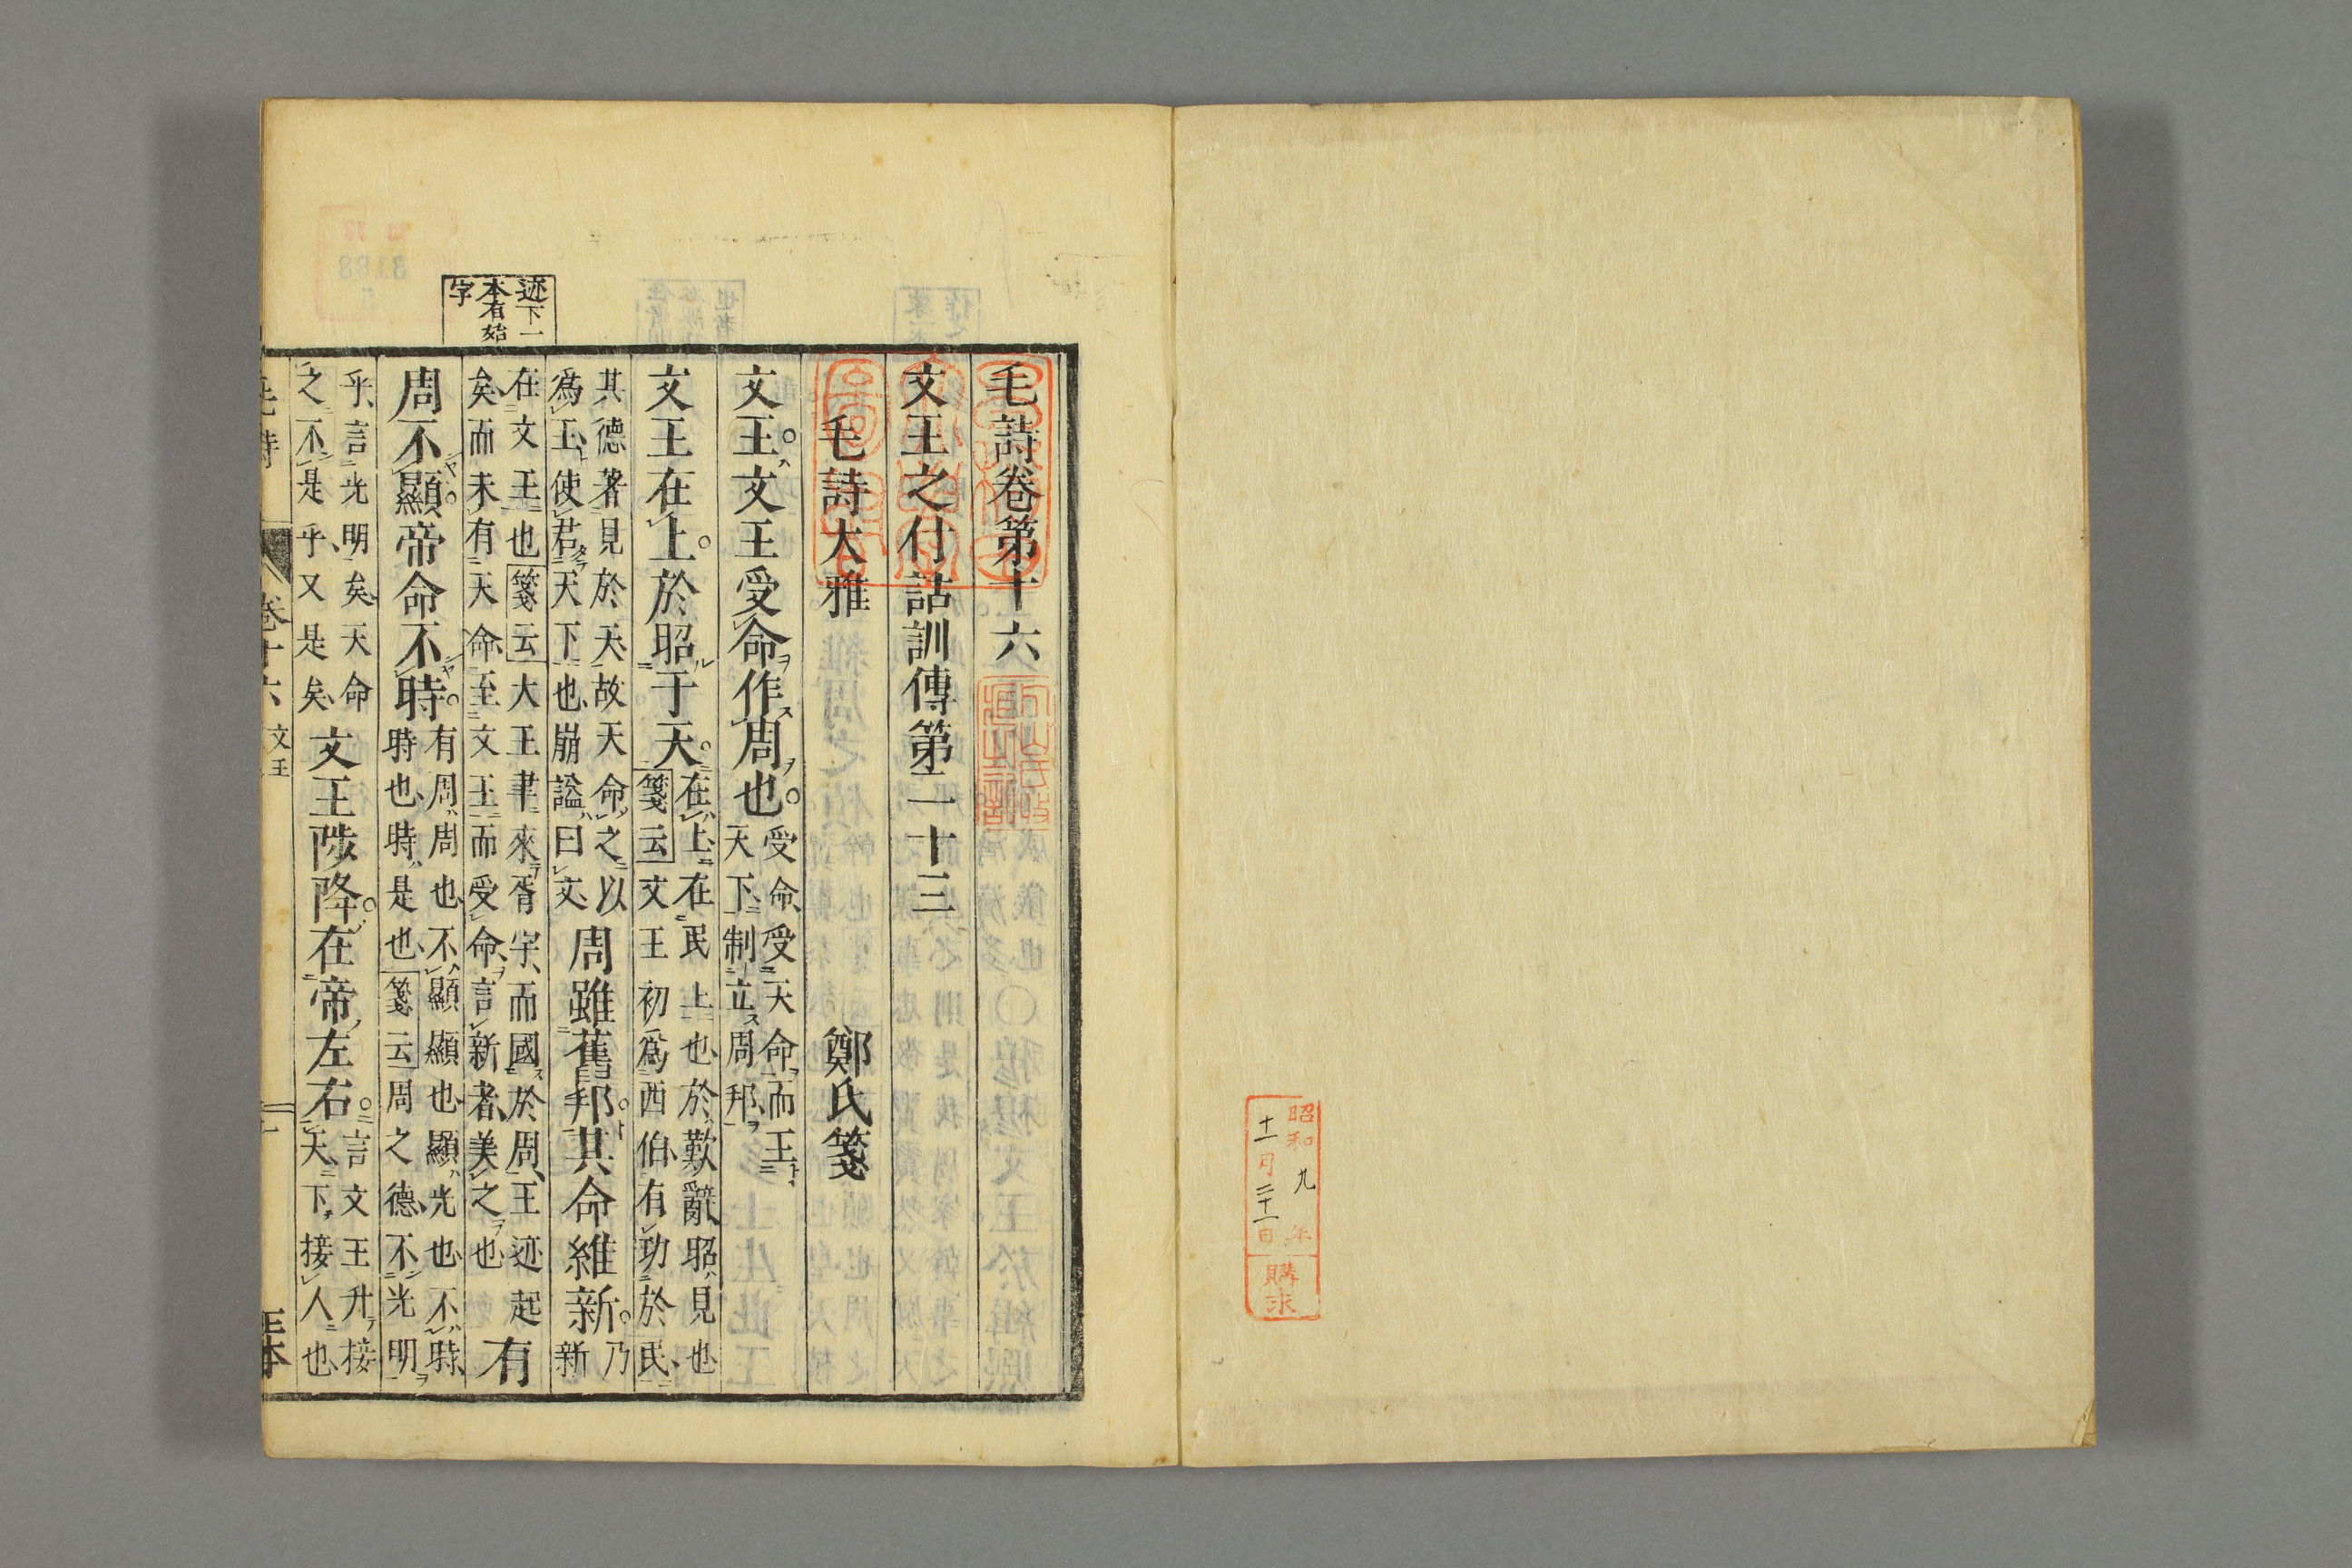 昭和九年
十一月二十一日
購求
毛詩卷第十六
文王之什詁訓傳第二十三
毛詩大雅　鄭氏箋
文王文王受命作周也
受命受天命而王
天下制立周邦
文王在上於昭于天
在上在民上也於歎辭昭見也
箋云文王初爲西伯有功於民
其德著見於天故天命之以
爲王使君天下也崩謚曰文
周雖舊邦其命維新
乃
新
在文王也箋云大王聿來胥宇而國於周王迹起
矣而未有天命至文王而受命言新者美之也
有
周不顯帝命不時
有周周也不顯顯也顯光也不時
時也時是也箋云周之德不光明
乎言光明矣天命
之不是乎又是矣
文王陟降在帝左右
言文王升接
天下接人也
迹下一
本有始
字
卷十六
文王